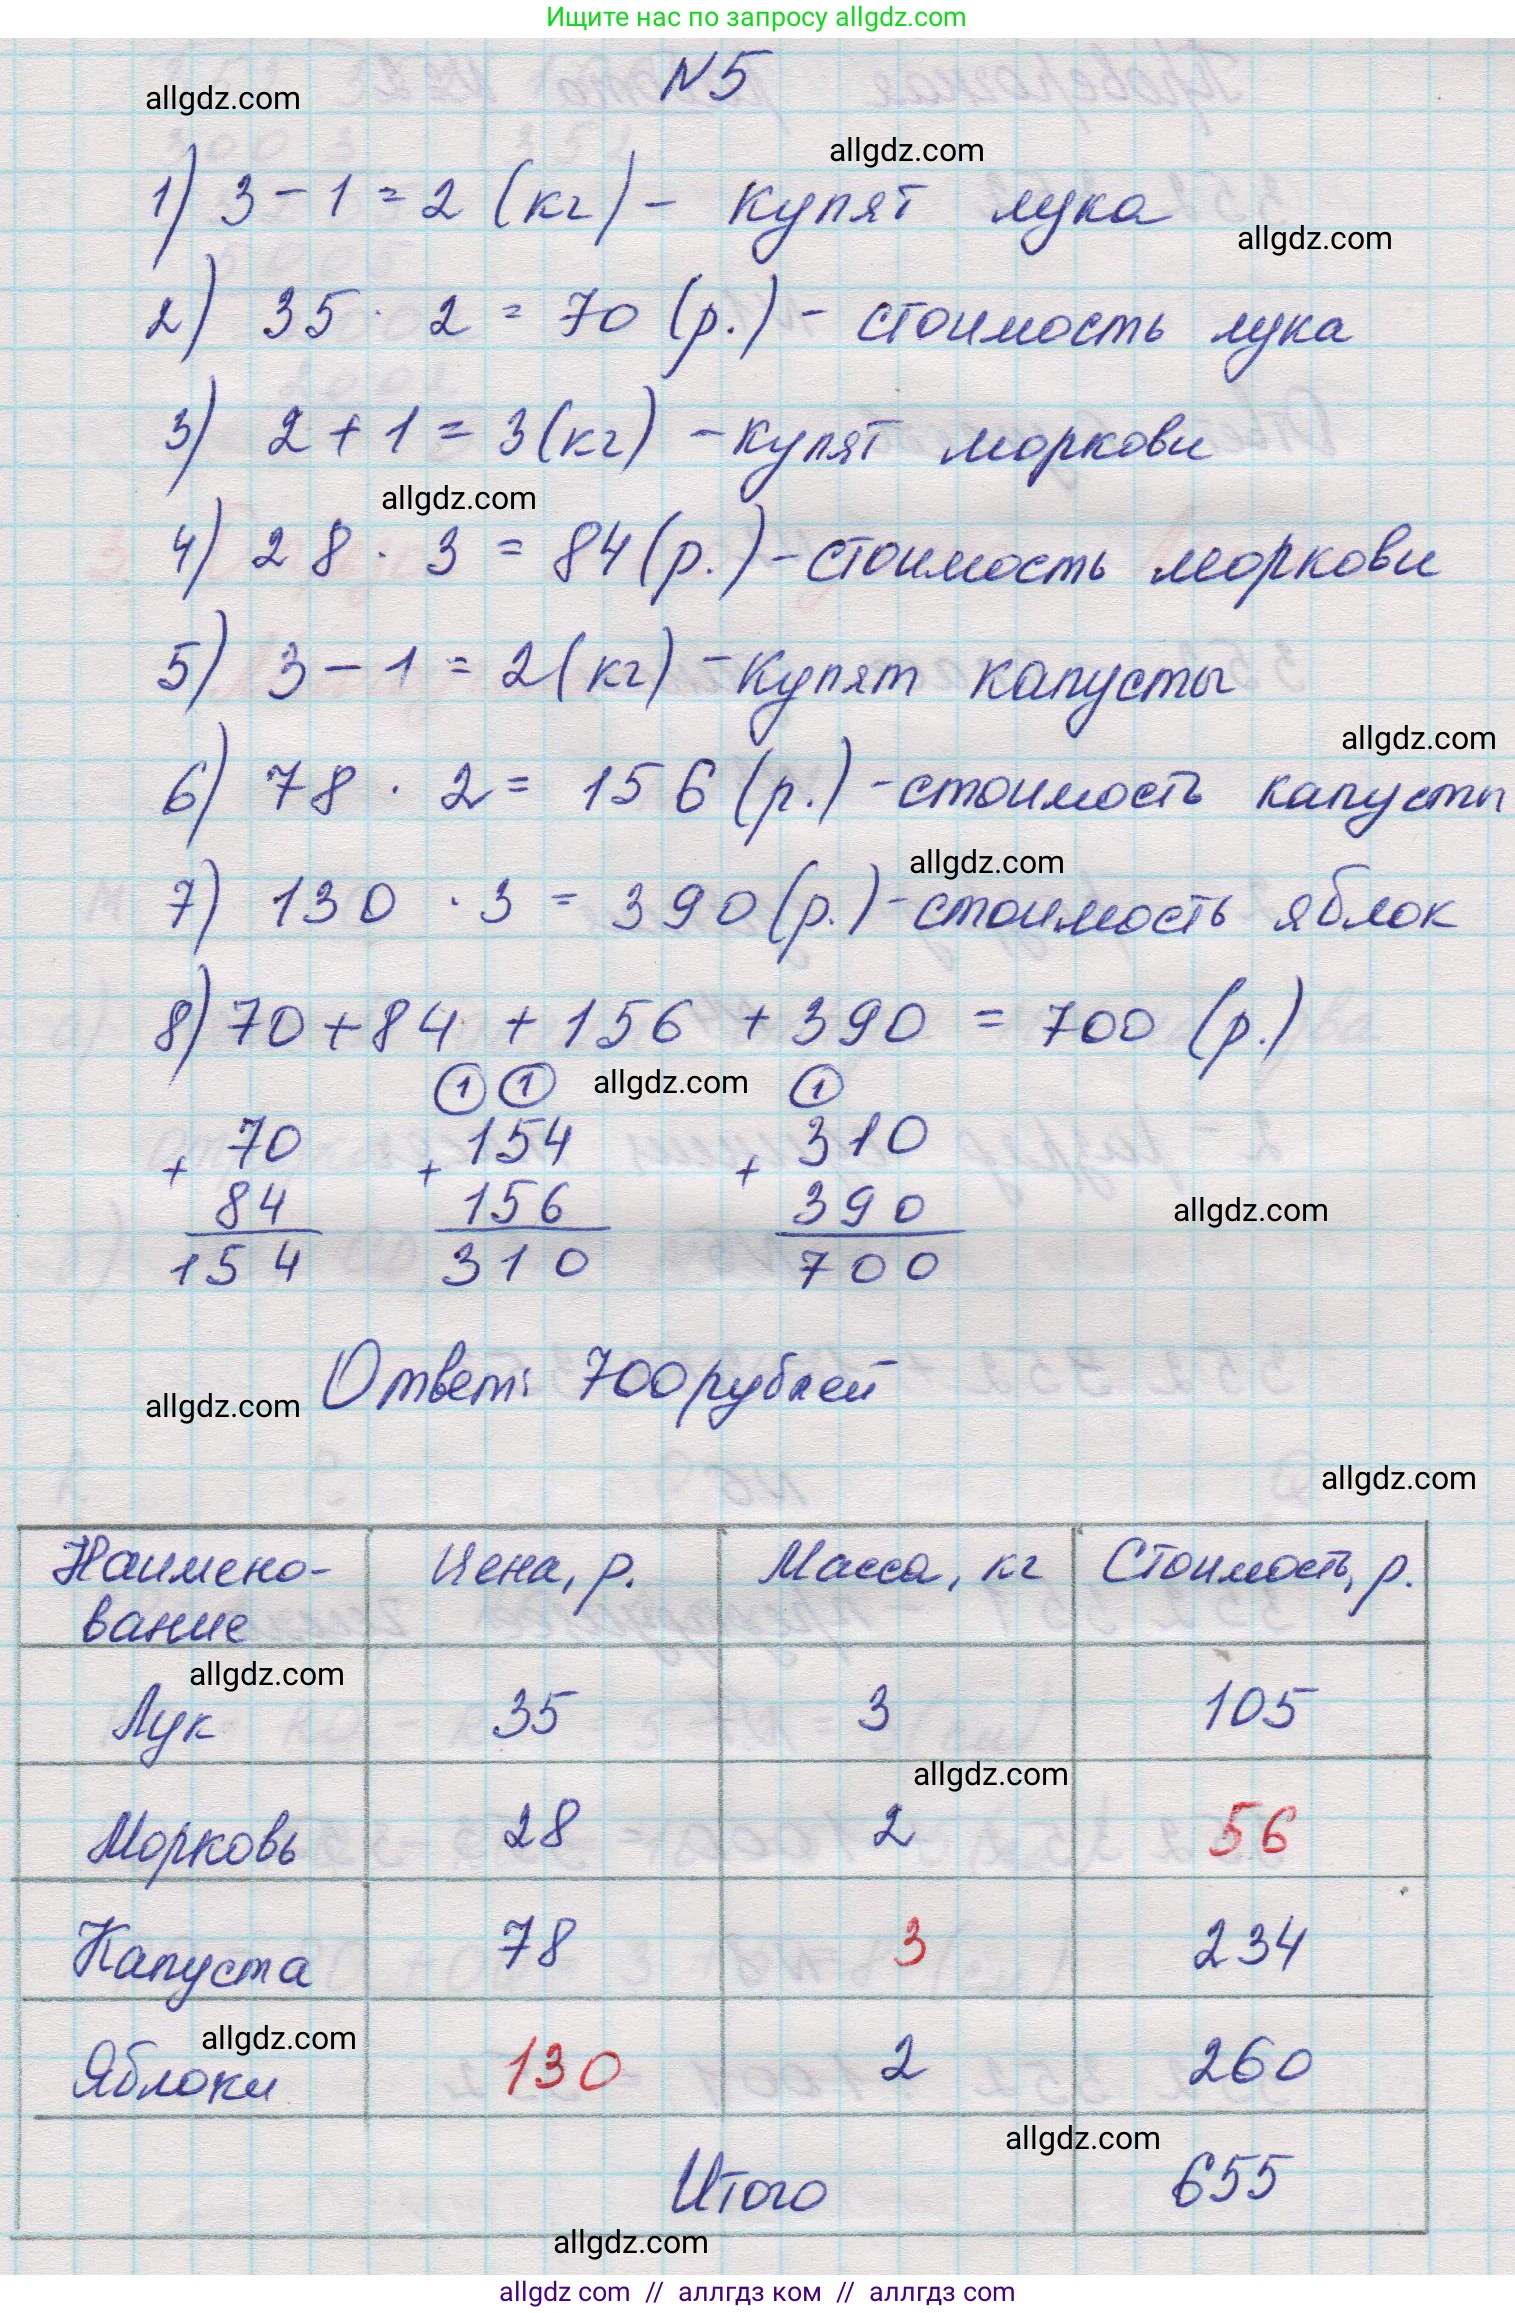 Ищите нас по запросу allgdz.com
№5
allgdz.com
allgdz.com
1) 3 - 1 = 2 (кг) - купят лука
allgdz.com
2) 35 · 2 = 70 (р.) - стоимость лука
3) 2 + 1 = 3 (кг) - купят моркови
allgdz.com
4) 28 · 3 = 84 (р.) - стоимость моркови
5) 3 - 1 = 2 (кг) - купят капусты
allgdz.com
6) 78 · 2 = 156 (р.) - стоимость капусты
allgdz.com
7) 130 · 3 = 390 (р.) - стоимость яблок
8) 70 + 84 + 156 + 390 = 700 (р.)
1 1 allgdz.com 1
+ 70 + 154 + 310
84 156 390 allgdz.com
154 310 700
Ответ: 700 рублей
allgdz.com
allgdz.com
Наимено- Цена, р. Масса, кг Стоимость, р.
вание
allgdz.com
Лук 35 3 105
allgdz.com
Морковь 28 2 56
Капуста 78 3 234
allgdz.com
Яблоки 130 2 260
allgdz.com
Итого 655
allgdz.com
allgdz com // аллгдз ком // аллгдз com